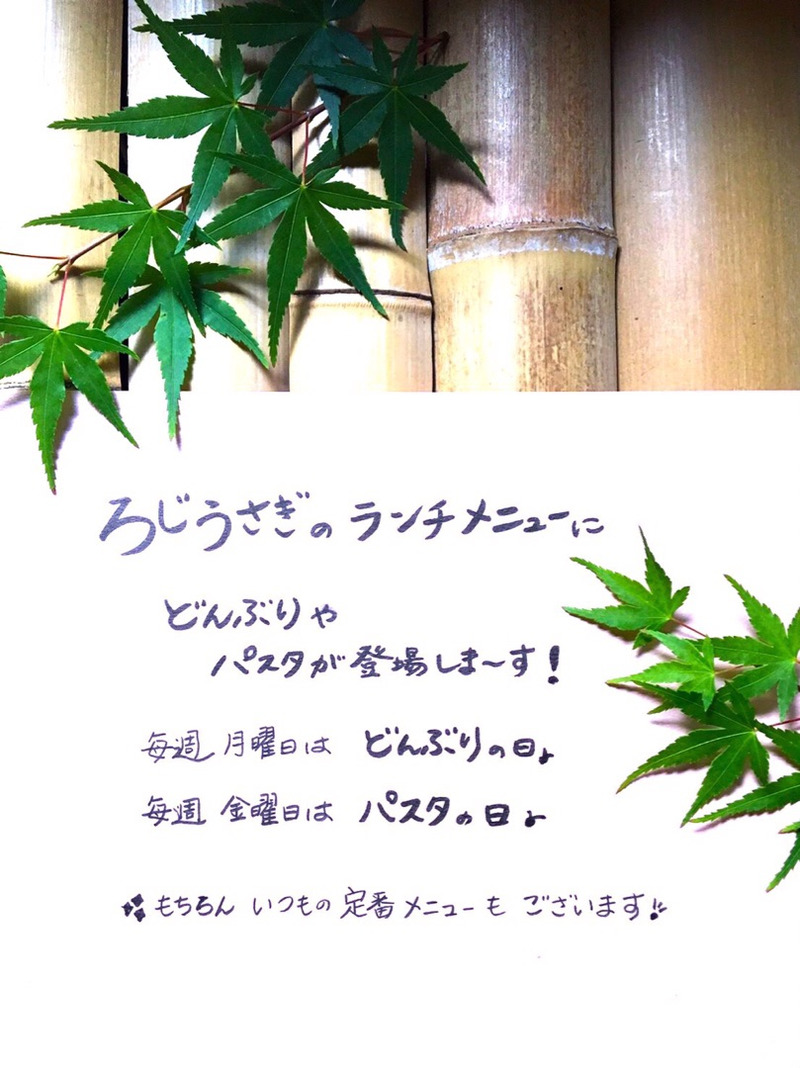 ろじうさぎのランチメニューに
どんぶりや
パスタが登場しま〜す!
毎週 月曜日は どんぶりの日♪
毎週 金曜日は パスタの日♪
もちろん いつもの定番メニューも ございます!!